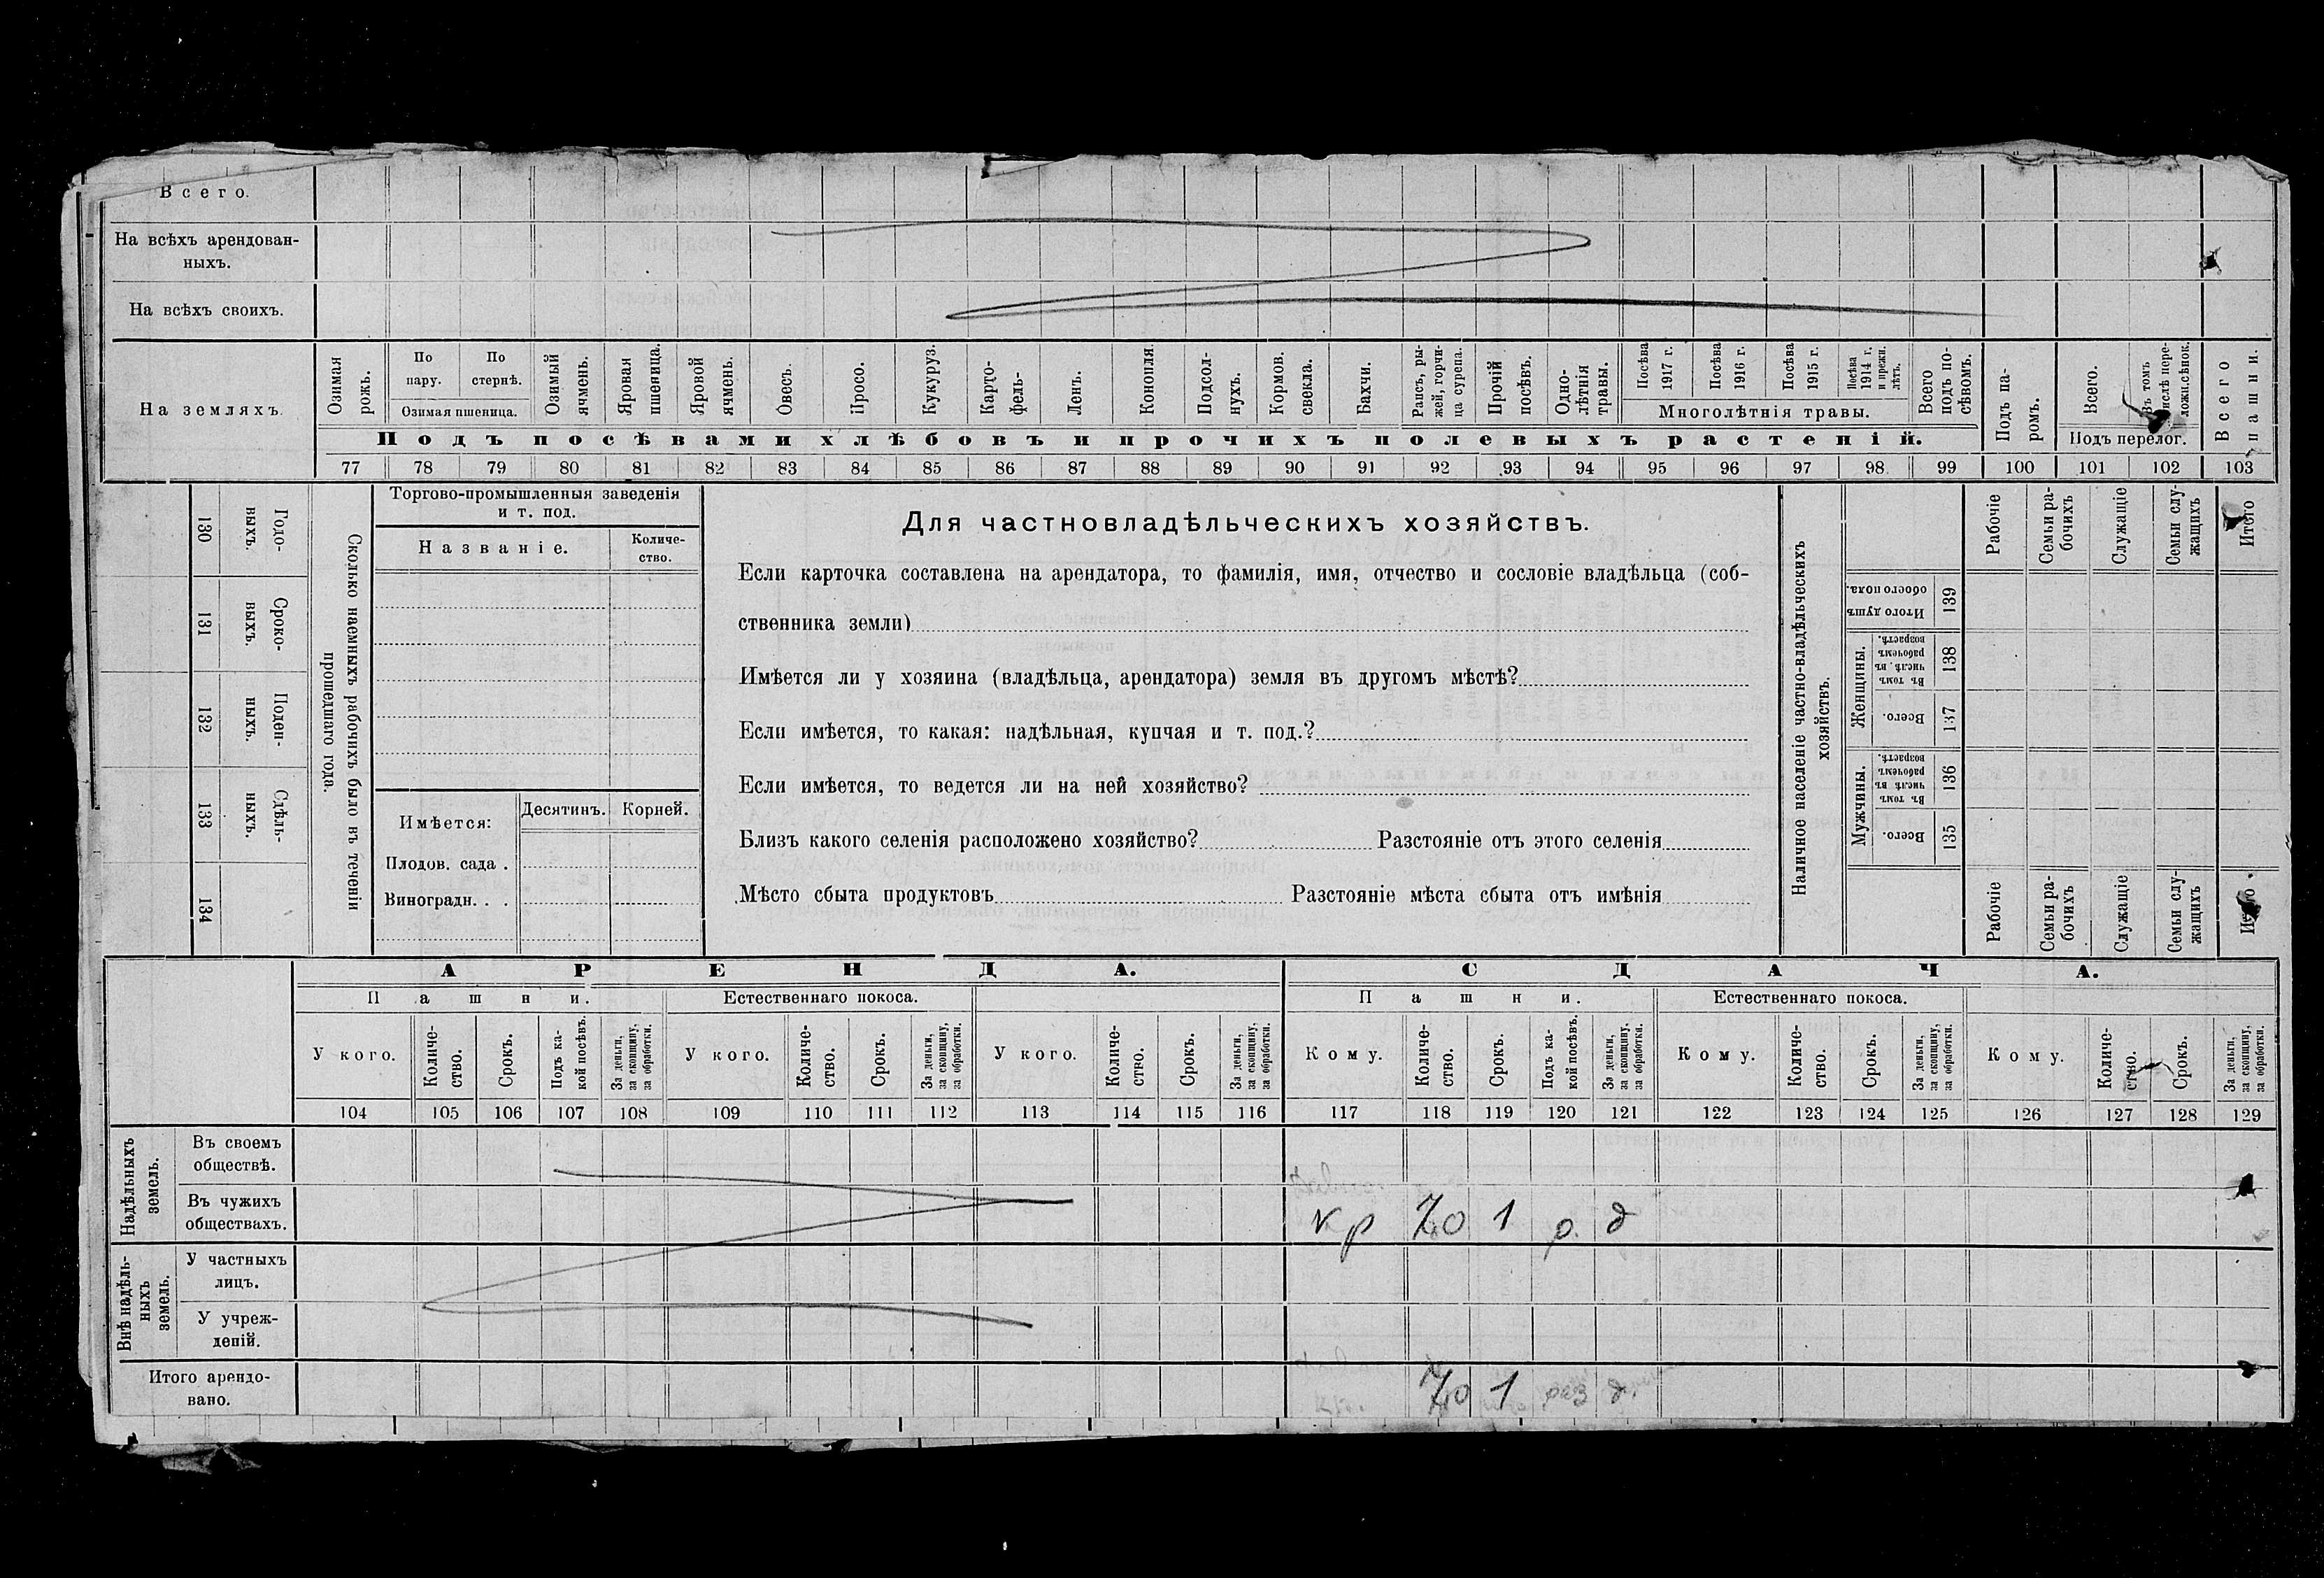 Всего.
На всѣхъ арендован-
ныхъ.
На всѣхъ своихъ.
На земляхъ.
Озимая рожь.
По пару.
По стернѣ.
Озимая пшеница.
Озимый ячмень.
Яровая пшеница.
Яровой ячмень.
Овесъ.
Просо.
Кукуруз.
Карто-
фель-
Ленъ.
Конопля
Подсол-
нухъ.
Кормов.
свекла.
Бахчи.
Рапсъ, ры-
жей, горчи-
ца сурепа.
Прочій
посѣвъ.
Одно-
лѣтнія
травы.
Посѣва 1917 г.
Посѣва 1916 г.
Посѣва 1915 г.
Посѣва 1914 г. и прежн. лѣтъ.
Многолѣтнія травы.
Всего подъ по-
сѣвомъ.
Подъ па-
ромъ.
Всего.
Въ томъ числѣ пере-
ложн.сѣнок.
Подъ перелог.
Всего пашни.
Подъ посѣвами хлѣбовъ и прочихъ полевыхъ растеній.
77 78 79 80 81 82 83 84 85 86 87 88 89 90 91 92 93 94 95 96 97 98 99 100 101 102 103
130 Годо-
ныхъ.
131 Сроко-
выхъ.
132 Поден-
ныхъ.
133 Сдѣль-
ныхъ.
134
Сколько наемныхъ рабочихъ было въ теченіи
прошедшаго года.
Торгово-промышленныя заведенія
и т. под.
Названіе.
Количе-
ство.
Имѣется:
Десятинъ.
Корней.
Плодов. сада .
Виноградн. . .
Для частновладѣльческихъ хозяйствъ.
Если карточка составлена на арендатора, то фамилія, имя, отчество и сословіе владѣльца (соб-
ственника земли)
Имѣется ли у хозяина (владѣльца, арендатора) земля въ другомъ мѣстѣ?
Если имѣется, то какая: надѣльная, купчая и т. под.?
Если имѣется, то ведется ли на ней хозяйство?
Близъ какого селенія расположено хозяйство? Разстояніе отъ этого селенія
Мѣсто сбыта продуктовъ Разстояніе мѣста сбыта отъ имѣнія
Наличное населеніе частно-владѣльческихъ
хозяйствъ.
Рабочіе
Семьи ра-
бочихъ
Служащіе
Семьи слу-
жащихъ
Итого
Итого душъ обоего пола. 139
Женщины.
Въ томъ числѣ въ рабочемъ возрастѣ. 138
Всего. 137
Мужчины.
Въ томъ числѣ въ рабочемъ возрастѣ. 136
Всего. 135
Рабочіе
Семьи ра-
бочихъ
Служащіе
Семьи слу-
жащихъ
Итого
АРЕНДА.
СДАЧА.
Пашни.
Естественнаго покоса.
Пашни.
Естественнаго покоса.
У кого.
Количе-
ство.
Срокъ.
Подъ ка-
кой посѣвъ.
За деньги,
за скопщину,
за обработки.
У кого.
Количе-
ство.
Срокъ.
За деньги,
за скопщину,
за обработки.
У кого.
Количе-
ство.
Срокъ.
За деньги,
за скопщину,
за обработки.
Кому.
Количе-
ство.
Срокъ.
Подъ ка-
кой посѣвъ.
За деньги,
за скопщину,
за обработки.
Кому.
Количе-
ство.
Срокъ.
За деньги,
за скопщину,
за обработки.
Кому.
Количе-
ство.
Срокъ.
За деньги,
за скопщину,
за обработки.
104 105 106 107 108 109 110 111 112 113 114 115 116 117 118 119 120 121 122 123 124 125 126 127 128 129
Надѣльныхъ
земель.
Въ своемъ
обществѣ.
Въ чужихъ
обществахъ.
кр 1 р. д
Внѣ надѣль-
ныхъ
земель.
У частныхъ
лицъ.
У учреж-
деній.
Итого арендо-
вано.
1 д.